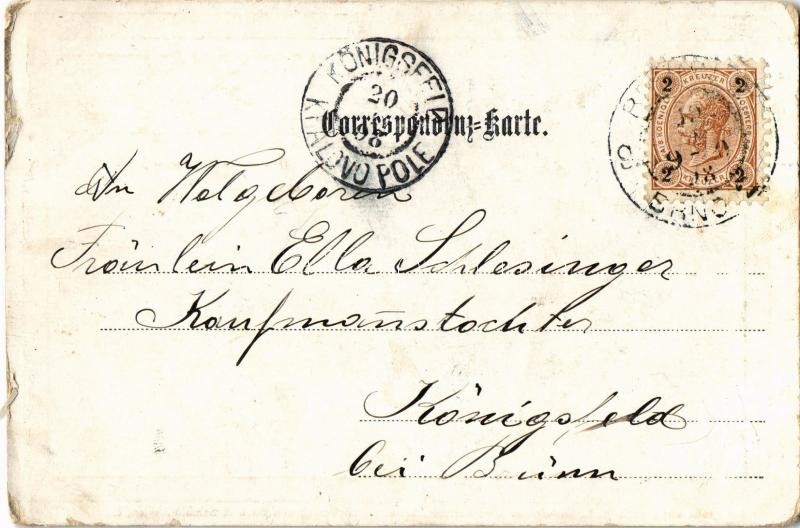 KÖNIGSFELD
20
98
KRÁLOVO POLE
Correspondenz-Karte.
2 KREUZER 2
2 2
BRNO
98
An Wolgeboren
Fräulein Ella Schlesinger
Kaufmannstochter
Königsfeld
bei Brünn